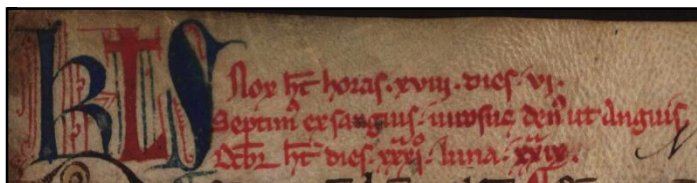 KLS
Nox ht horas·xviii·dies·vi·
Septimꝰ exsanguis·uirosus denꝰ ut Anguis·
ht dies·xxxi·luna·xxix·